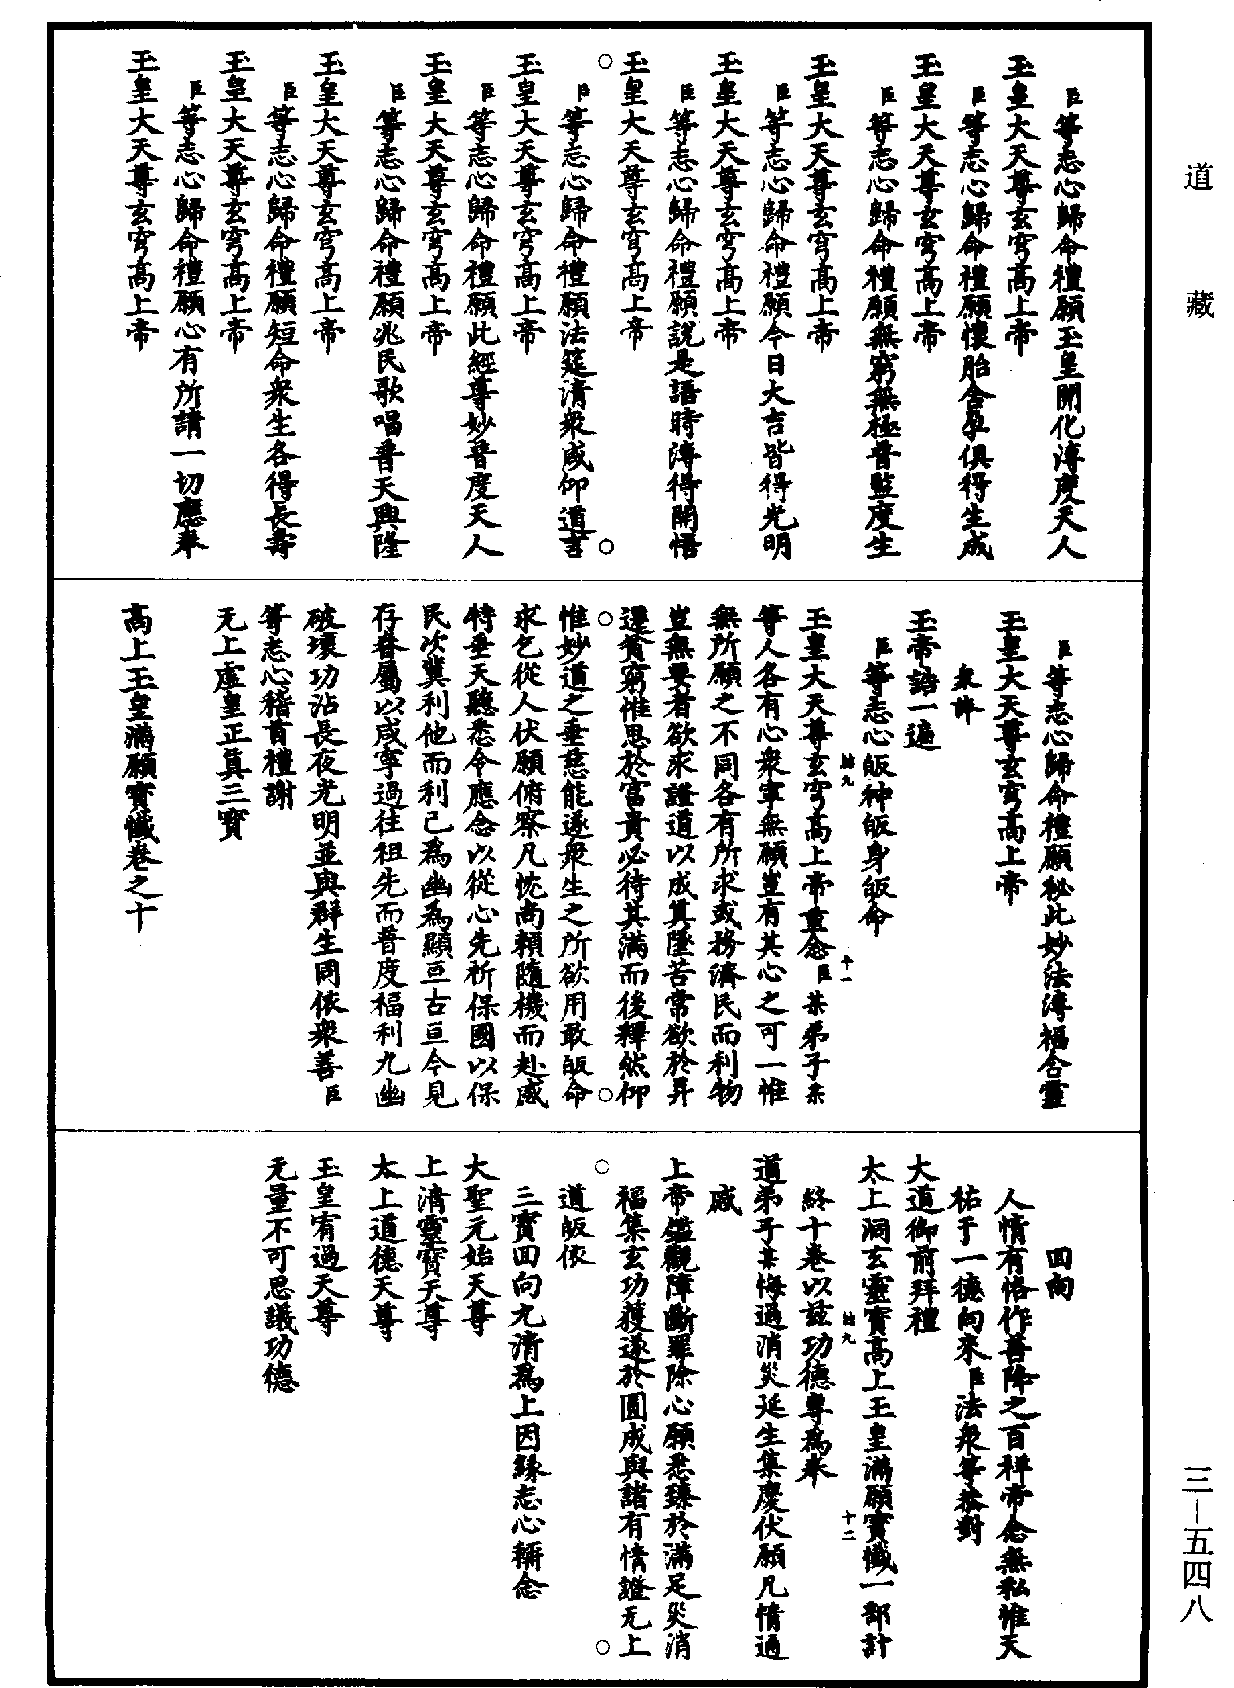 道藏
臣等志心歸命禮願玉皇開化溥度天人
玉皇大天尊玄穹高上帝
臣等志心歸命禮願懷胎含孕俱得生成
玉皇大天尊玄穹高上帝
臣等志心歸命禮願無窮無極普監度生
玉皇大天尊玄穹高上帝
臣等志心歸命禮願今日大吉皆得光明
玉皇大天尊玄穹高上帝
臣等志心歸命禮願說是語時溥得開悟
玉皇大天尊玄穹高上帝
臣等志心歸命禮願法筵清衆咸仰道言
玉皇大天尊玄穹高上帝
臣等志心歸命禮願此經尊妙普度天人
玉皇大天尊玄穹高上帝
臣等志心歸命禮願兆民歌唱普天興隆
玉皇大天尊玄穹高上帝
臣等志心歸命禮願短命衆生各得長壽
玉皇大天尊玄穹高上帝
臣等志心歸命禮願心有所請一切應奉
玉皇大天尊玄穹高上帝
臣等志心歸命禮願秘此妙法溥福含靈
玉皇大天尊玄穹高上帝
衆誦
玉帝誥一遍
臣等志心皈神皈身皈命
玉皇大天尊玄穹高上帝重念臣某弟子某
等人各有心衆寧無願豈有其心之可一惟
無所願之不同各有所求或務濟民而利物
豈無要者欲求證道以成真墜苦常欲於昇
遷貧窮惟思於富貴必待其滿而後釋然仰
惟妙道之垂慈能遂衆生之所欲用敢皈命
求乞從人伏願俯察凡忱尚賴隨機而赴感
特垂天聽悉令應念以從心先祈保國以保
民次冀利他而利己為幽為顯亘古亘今見
存眷屬以咸寧過往祖先而普度福利九幽
破壞功沾長夜光明並與群生同依衆善臣
等志心稽首禮謝
无上虛皇正真三寶
高上玉皇滿願寶懺卷之十
回向
人情有恪作善降之百祥帝念無私惟天
祐于一德向來臣法衆等恭對
大道御前拜禮
太上洞玄靈寶高上玉皇滿願寶懺一部計
終十卷以兹功德尊為奉
道弟子某悔過消災延生集慶伏願凡情通
感
上帝鑑觀障斷罪除心願悉臻於滿足災消
福集玄功獲遂於圓成與諸有情證无上
道皈依
三寶回向九清為上因緣志心稱念
大聖元始天尊
上清靈寶天尊
太上道德天尊
玉皇宥過天尊
无量不可思議功德
三－五四八